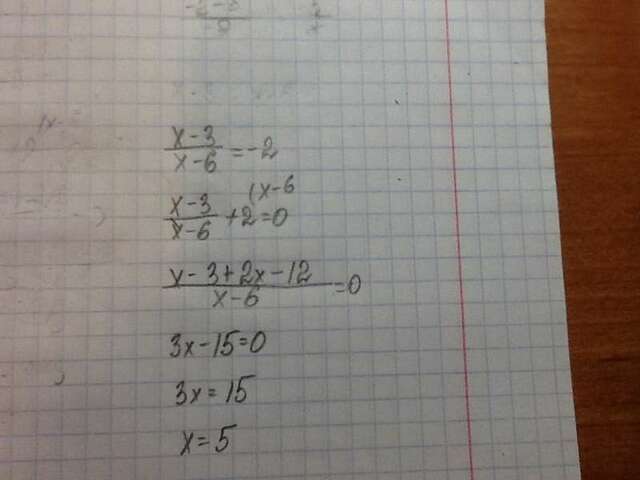 x-3/x-6 = -2
x-3/x-6 + 2 (x-6 = 0
x-3+2x-12/x-6 = 0
3x-15=0
3x=15
x=5